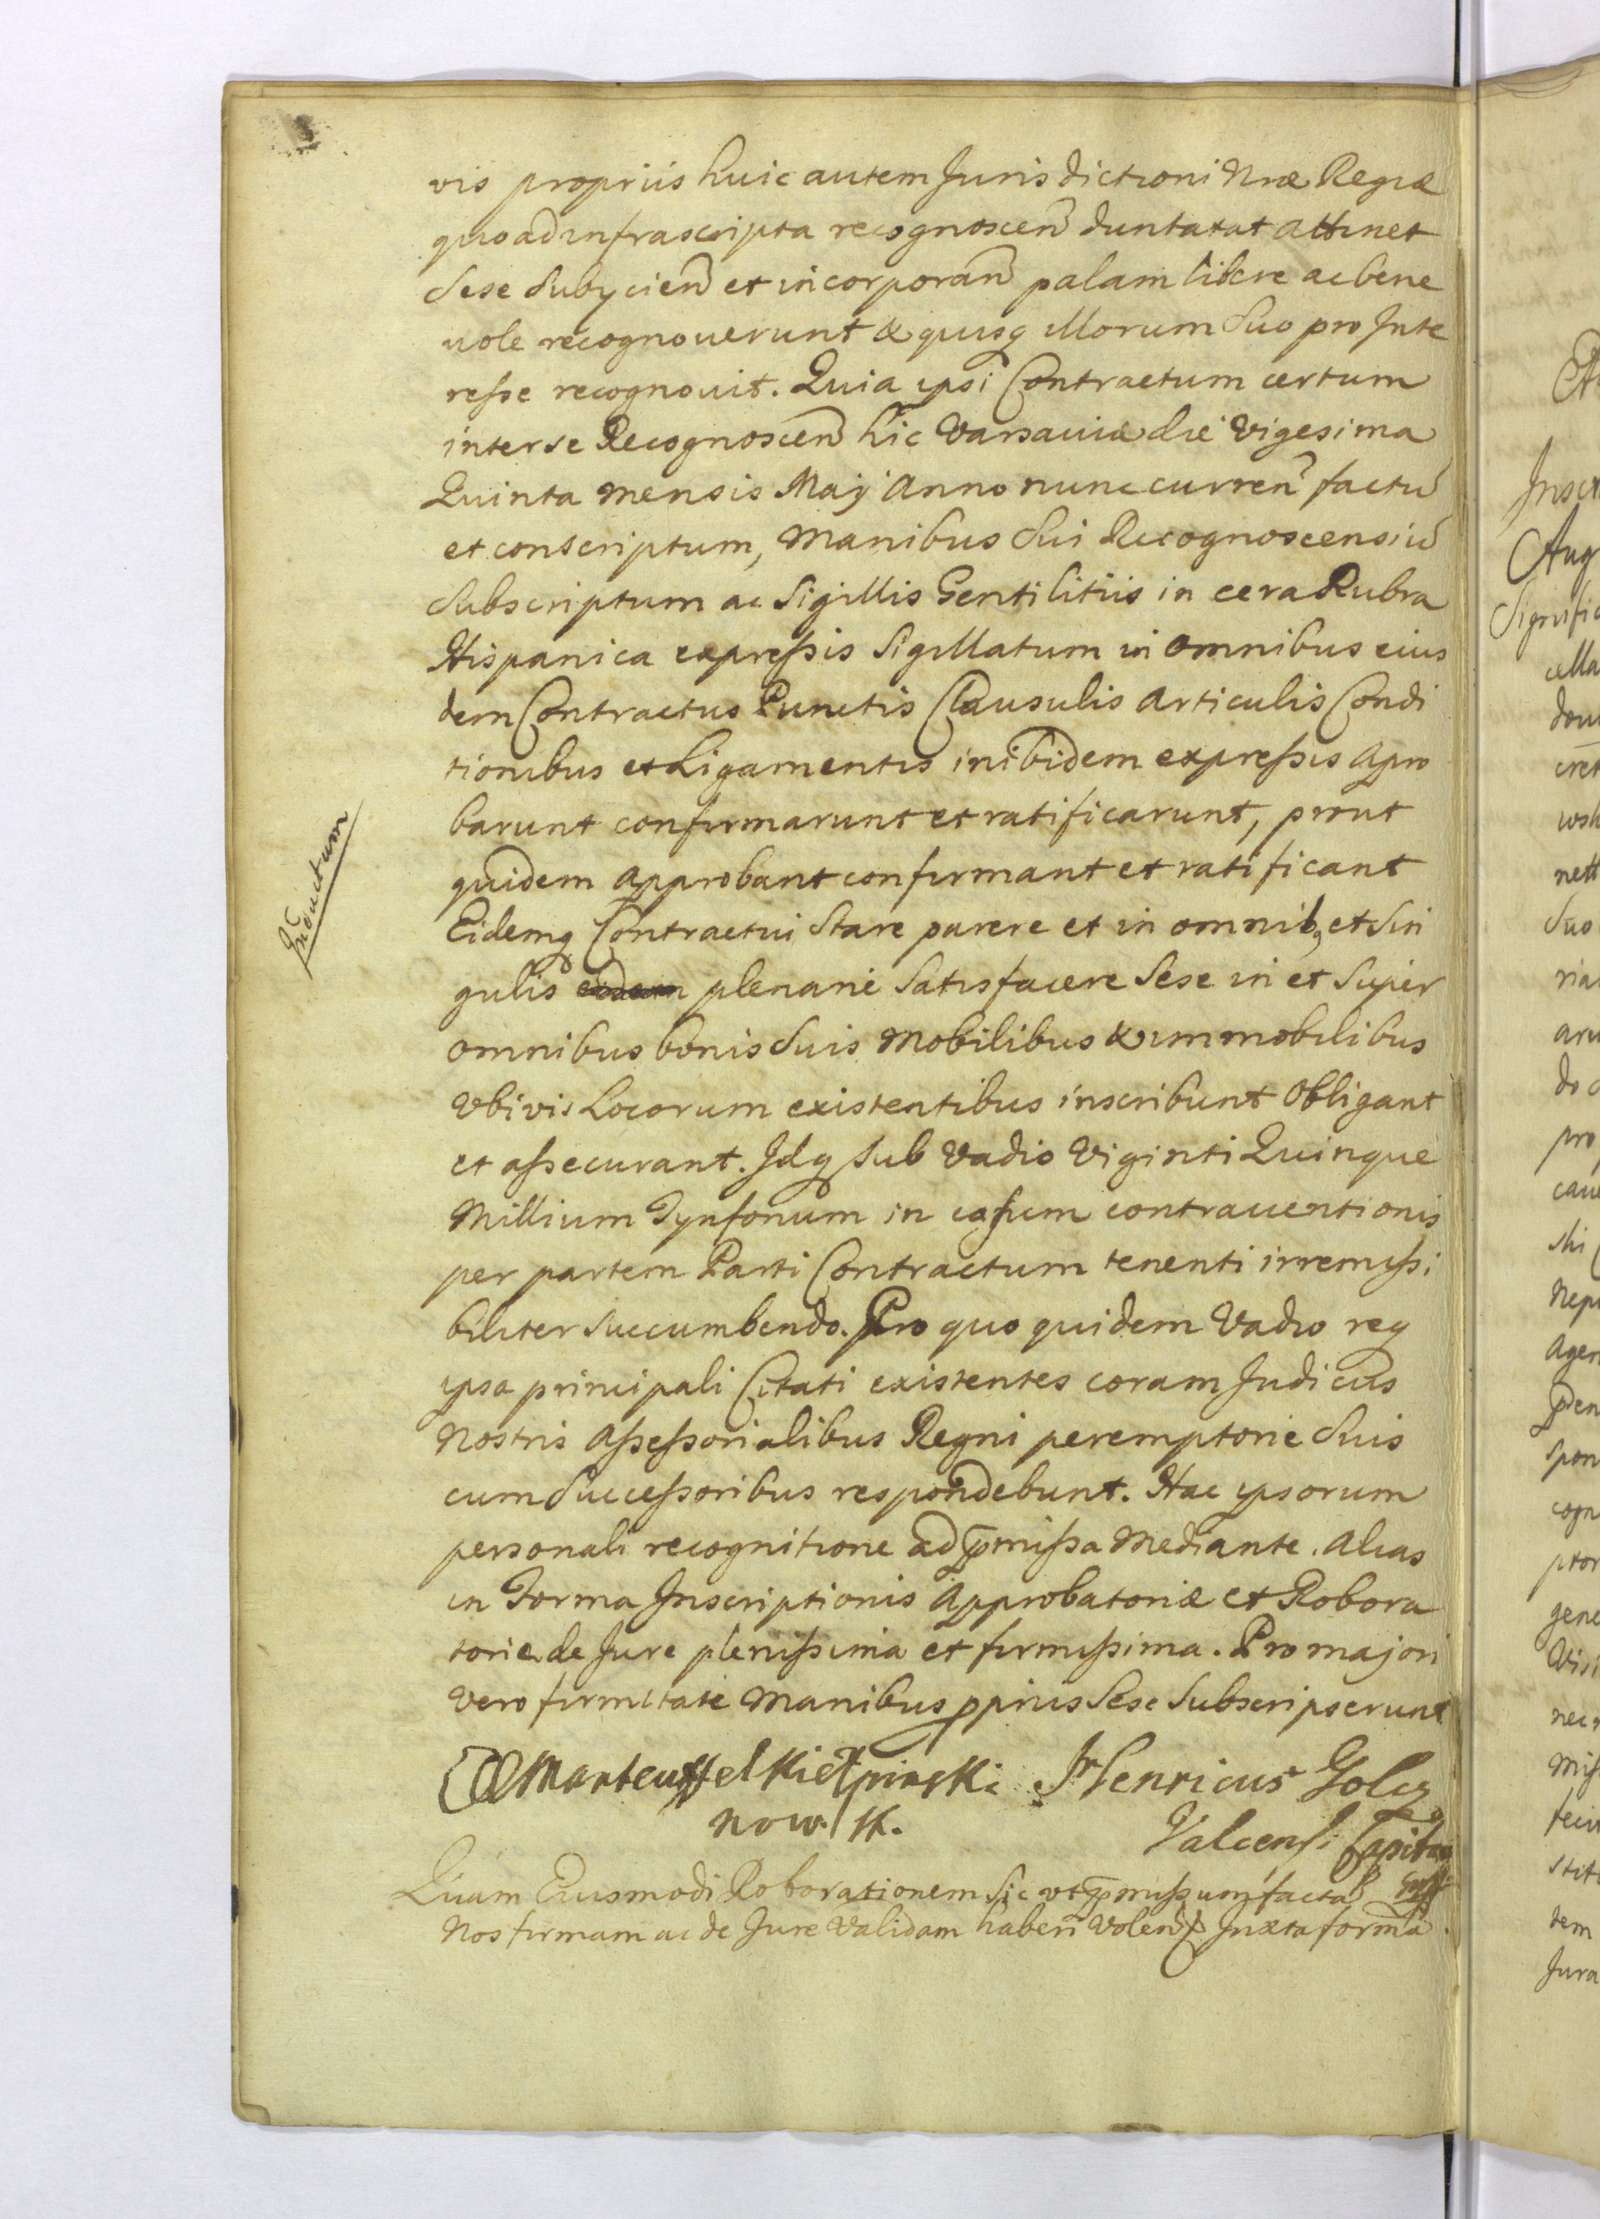 vis propriis huic autem Jurisdictioni Nræ Regiæ
quoad infrascripta recognoscen̄ duntaxat attinet
sese subycien̄ et incorporan̄ palam libere ac bene
uole recognouerunt & quisq illorum suo pro Inte
resse recognouit. Quia ipsi Contractum certum
inter se Recognoscen̄ hic Varsaviæ die Vigesima
Quinta mensis Maij Anno nunc curren̄ factū
et conscriptum, Manibus sui Recognoscensiū
Subscriptum ac Sigillis Gentilitiis in cera Rubra
Hispanica expressis Sigillatum in omnibus eius
dem Contractus Punctis Clausulis articulis Condi
tionibus et Ligamentis inibidem expressis apro
barunt confirmarunt et ratificarunt, prout
quidem approbant confirmant et ratificant
Eidemq Contractui stare parere et in omnib9 et sin
gulis plenarie Satisfacere Sese in et Super
omnibus bonis suis Mobilibus & immobilibus
Vbivis Locorum existentibus inscribunt Obligant
et assecurant. Idq sub Vadio Viginti Quinque
Millium Tynfonum in casum contrauentionis
per partem Parti Contractum tenenti irremissi
biliter succumbendo. Pro quo quidem Vadio req
ipsa principali Citati existentes coram Judiciis
Nostris Assessorialibus Regni peremptorie suis
cum successoribus respondebunt. Hac ipsorum
personali recognitione ad p̄missa Mediante. alias
in Forma Inscriptionis Approbatoriæ et Robora
toriæ de Jure plenissima et firmissima. Pro majori
Vero firmitate Manibus ppriis Sese Subscripserunt
Manteuffel Kiełpinski Henricus Golcz
now. st. Valcensi Capitan
Quam Eiusmodi Roborationem sic vt p̄missum facta
Nos firmam ac de Jure Validam haberi Volen̄ Juxta formā
Inductum